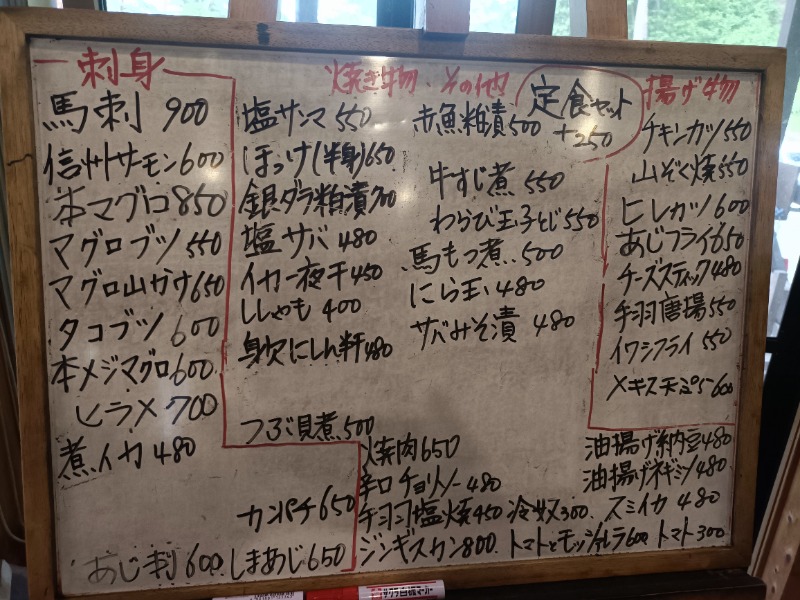 刺身
馬刺 900
信州サーモン 600
本マグロ 850
マグロブツ 550
マグロ山かけ 650
タコブツ 600
本メジマグロ 600
ヒラメ 700
煮イカ 480
カンパチ 650
あじ刺 600 しまあじ 650
焼き物、その他
塩サンマ 550
ほっけ(半身) 650
銀ダラ粕漬 700
塩サバ 480
イカ一夜干 450
ししゃも 400
身欠にしん半干 480
つぶ貝煮 500
赤魚粕漬 500
牛すじ煮 550
わらび玉子とじ 550
馬もつ煮 500
にら玉 480
サバみそ漬 480
定食セット
+250
揚げ物
チキンカツ 550
山ぞく焼 550
ヒレカツ 600
あじフライ 650
チーズスティック 480
手羽唐揚 550
イワシフライ 550
メキス天ぷら 600
焼肉 650
辛口チョリソー 480
手羽塩焼 450 冷奴 300 スミイカ 480
ジンギスカン 800 トマトとモッツァレラ 600 トマト 300
油揚げ納豆 480
油揚げネギミソ 480